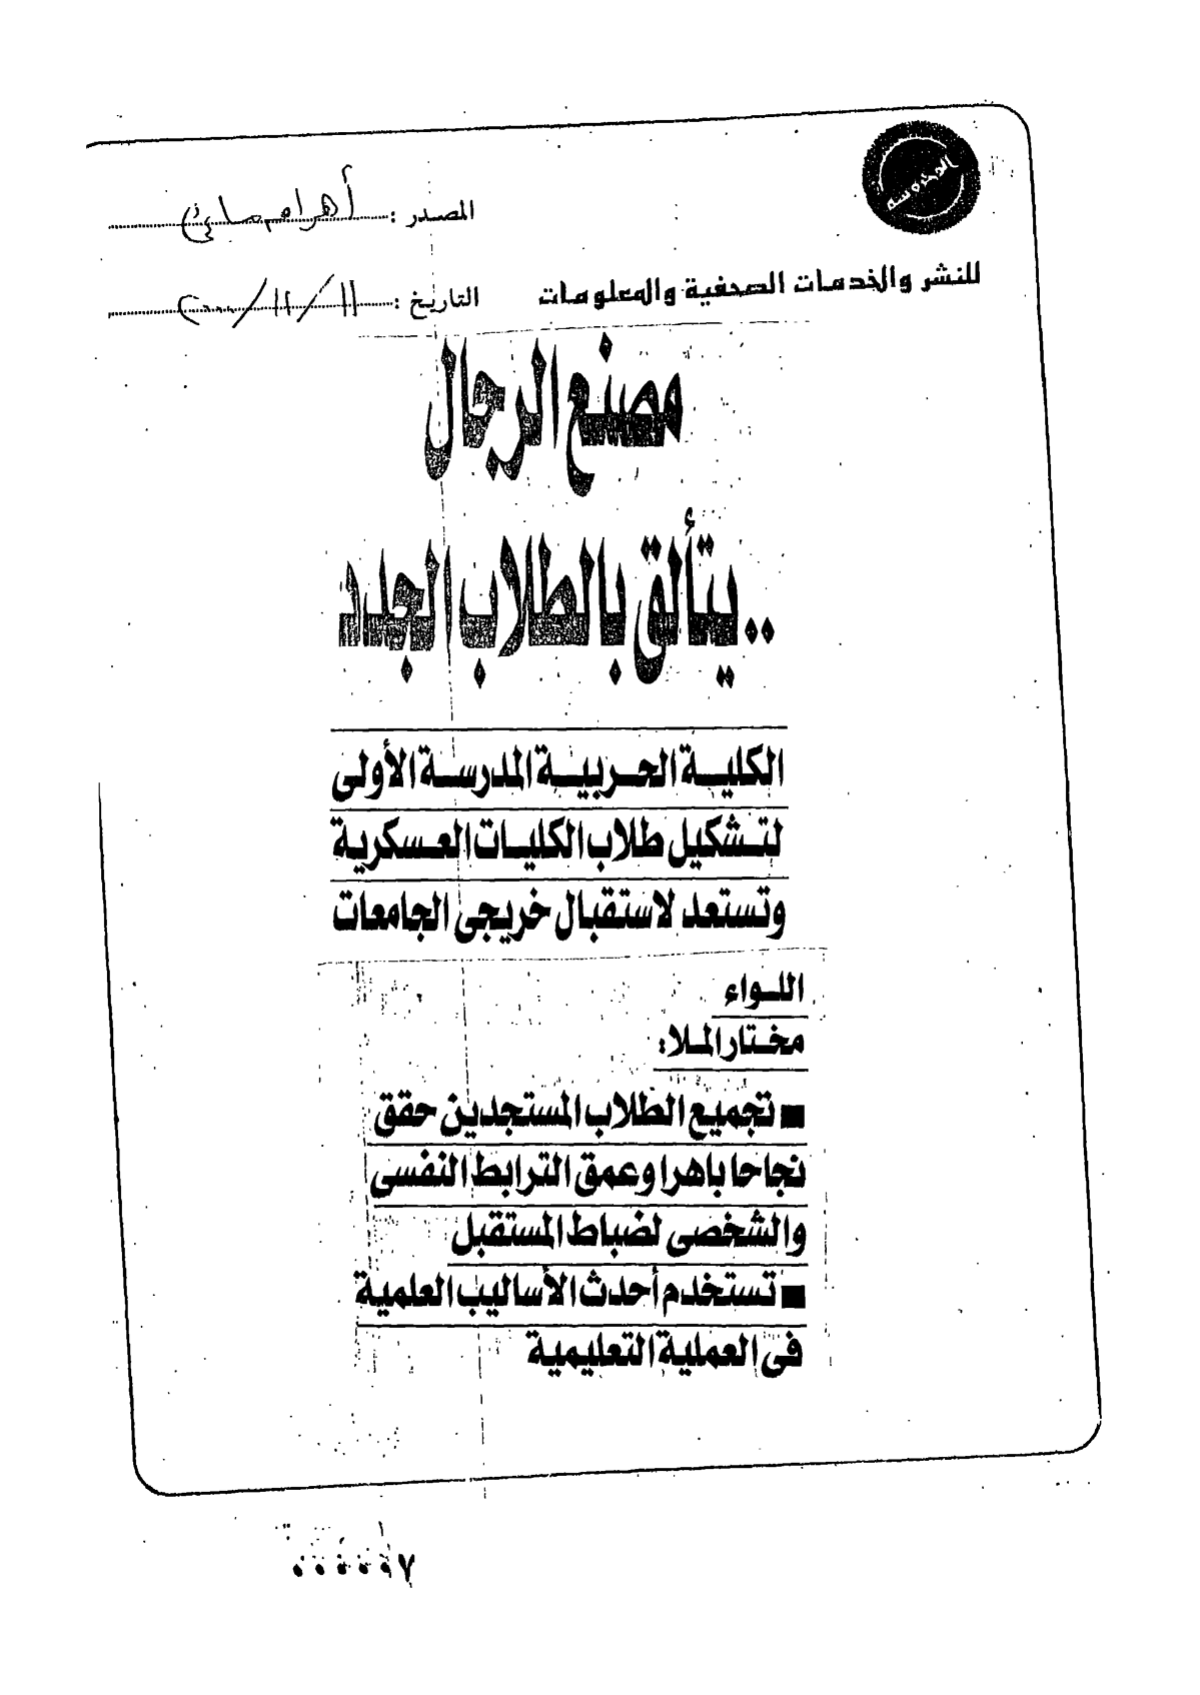 المحروسة
المصدر : أهرام مسائي
للنشر والخدمات الصحفية والمعلومات
التاريخ : ١١ / ١٢ / ٢٠٠٠
مصنع الرجال
..يتألق بالطلاب الجدد
الكلية الحربية المدرسة الأولى
لتشكيل طلاب الكليات العسكرية
وتستعد لاستقبال خريجى الجامعات
اللواء
مختار الملا:
■ تجميع الطلاب المستجدين حقق
نجاحا باهرا وعمق الترابط النفسى
والشخصى لضباط المستقبل
■ تستخدم أحدث الأساليب العلمية
فى العملية التعليمية